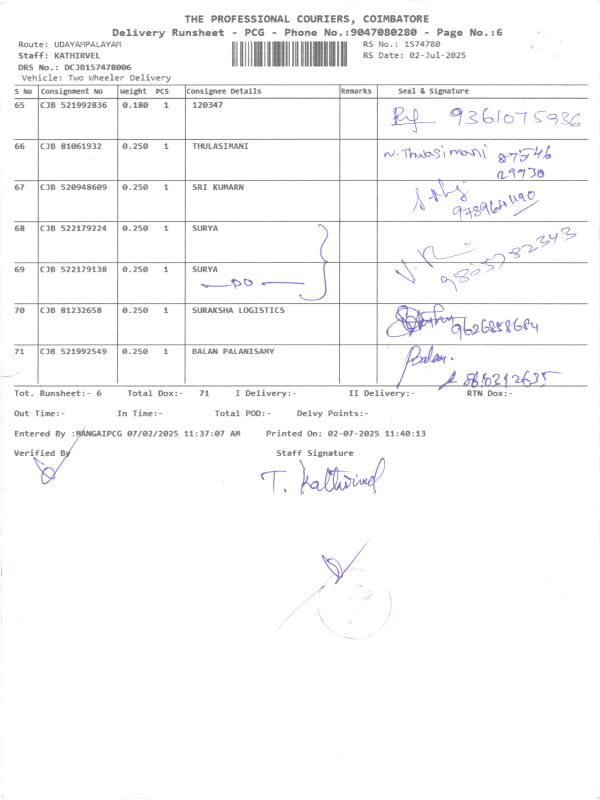 THE PROFESSIONAL COURIERS, COIMBATORE
Delivery Runsheet - PCG - Phone No.:9047080280 - Page No.:6
Route: UDAYAMPALAYAM RS No.: 1574780
Staff: KATHIRVEL RS Date: 02-Jul-2025
DRS No.: DCJB157478006
Vehicle: Two Wheeler Delivery
S No Consignment No Weight PCS Consignee Details Remarks Seal & Signature
65 CJB 521992836 0.180 1 120347 9361075936
66 CJB 81061932 0.250 1 THULASIMANI N. Thulasimani 87546
29930
67 CJB 520948609 0.250 1 SRI KUMARN
68 CJB 522179224 0.250 1 SURYA
69 CJB 522179138 0.250 1 SURYA
DO
70 CJB 81232658 0.250 1 SURAKSHA LOGISTICS 9626858684
71 CJB 521992549 0.250 1 BALAN PALANISAMY Balan.
Tot. Runsheet:- 6 Total Dox:- 71 I Delivery:- II Delivery:- RTN Dox:-
Out Time:- In Time:- Total POD:- Delvy Points:-
Entered By :MANGAIPCG 07/02/2025 11:37:07 AM Printed On: 02-07-2025 11:40:13
Verified By Staff Signature